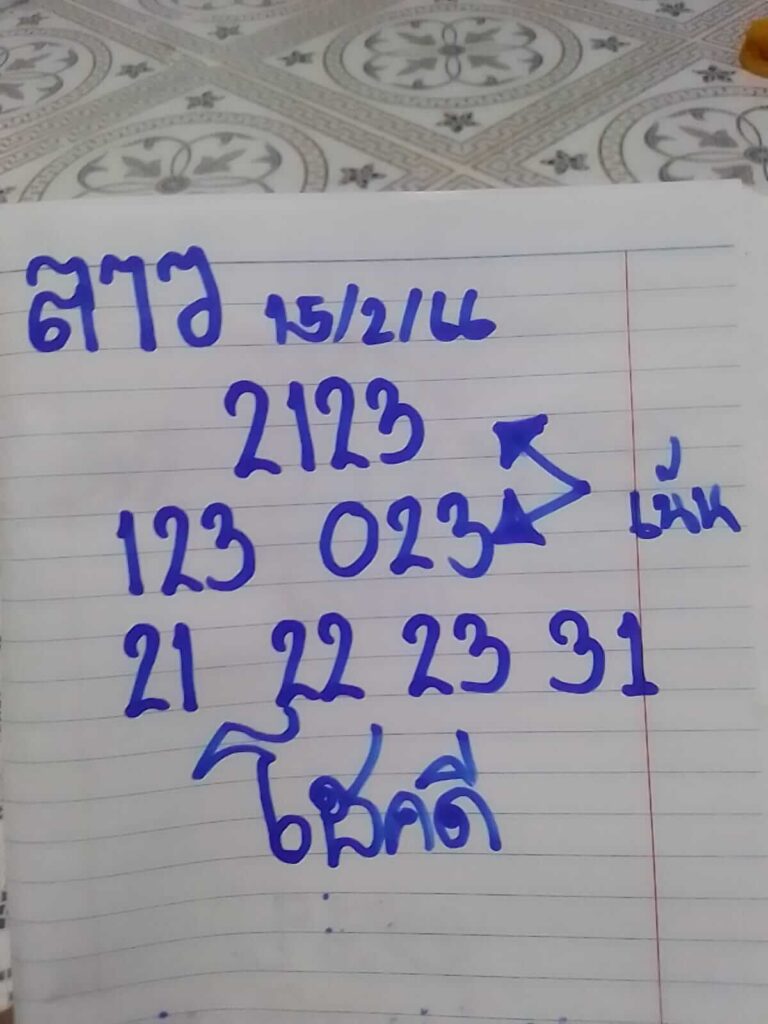 ลาว 15/2/66
2123
123 023 เน้น
21 22 23 31
โชคดี